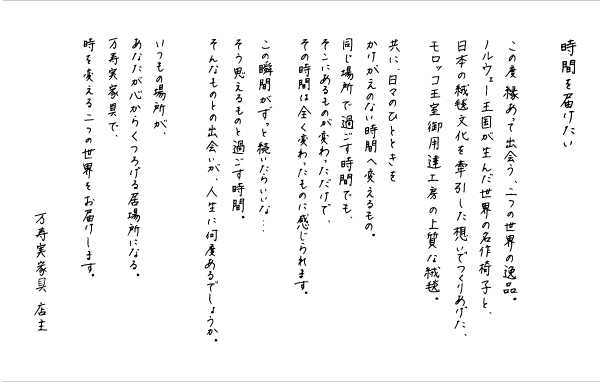 時間を届けたい
この度縁あって出会う、二つの世界の逸品。
ノルウェー王国が生んだ世界の名作椅子と、
日本の絨毯文化を牽引した想いでつくりあげた、
モロッコ王室御用達工房の上質な絨毯。
共に、日々のひとときを
かけがえのない時間へ変えるもの。
同じ場所で過ごす時間でも、
そこにあるものが変わっただけで、
その時間は全く変わったものに感じられます。
この瞬間がずっと続いたらいいな…
そう思えるものと過ごす時間。
そんなものとの出会いが、人生に何度あるでしょうか。
いつもの場所が、
あなたが心からくつろげる居場所になる。
万寿実家具で、
時を変える二つの世界をお届けします。
万寿実家具 店主